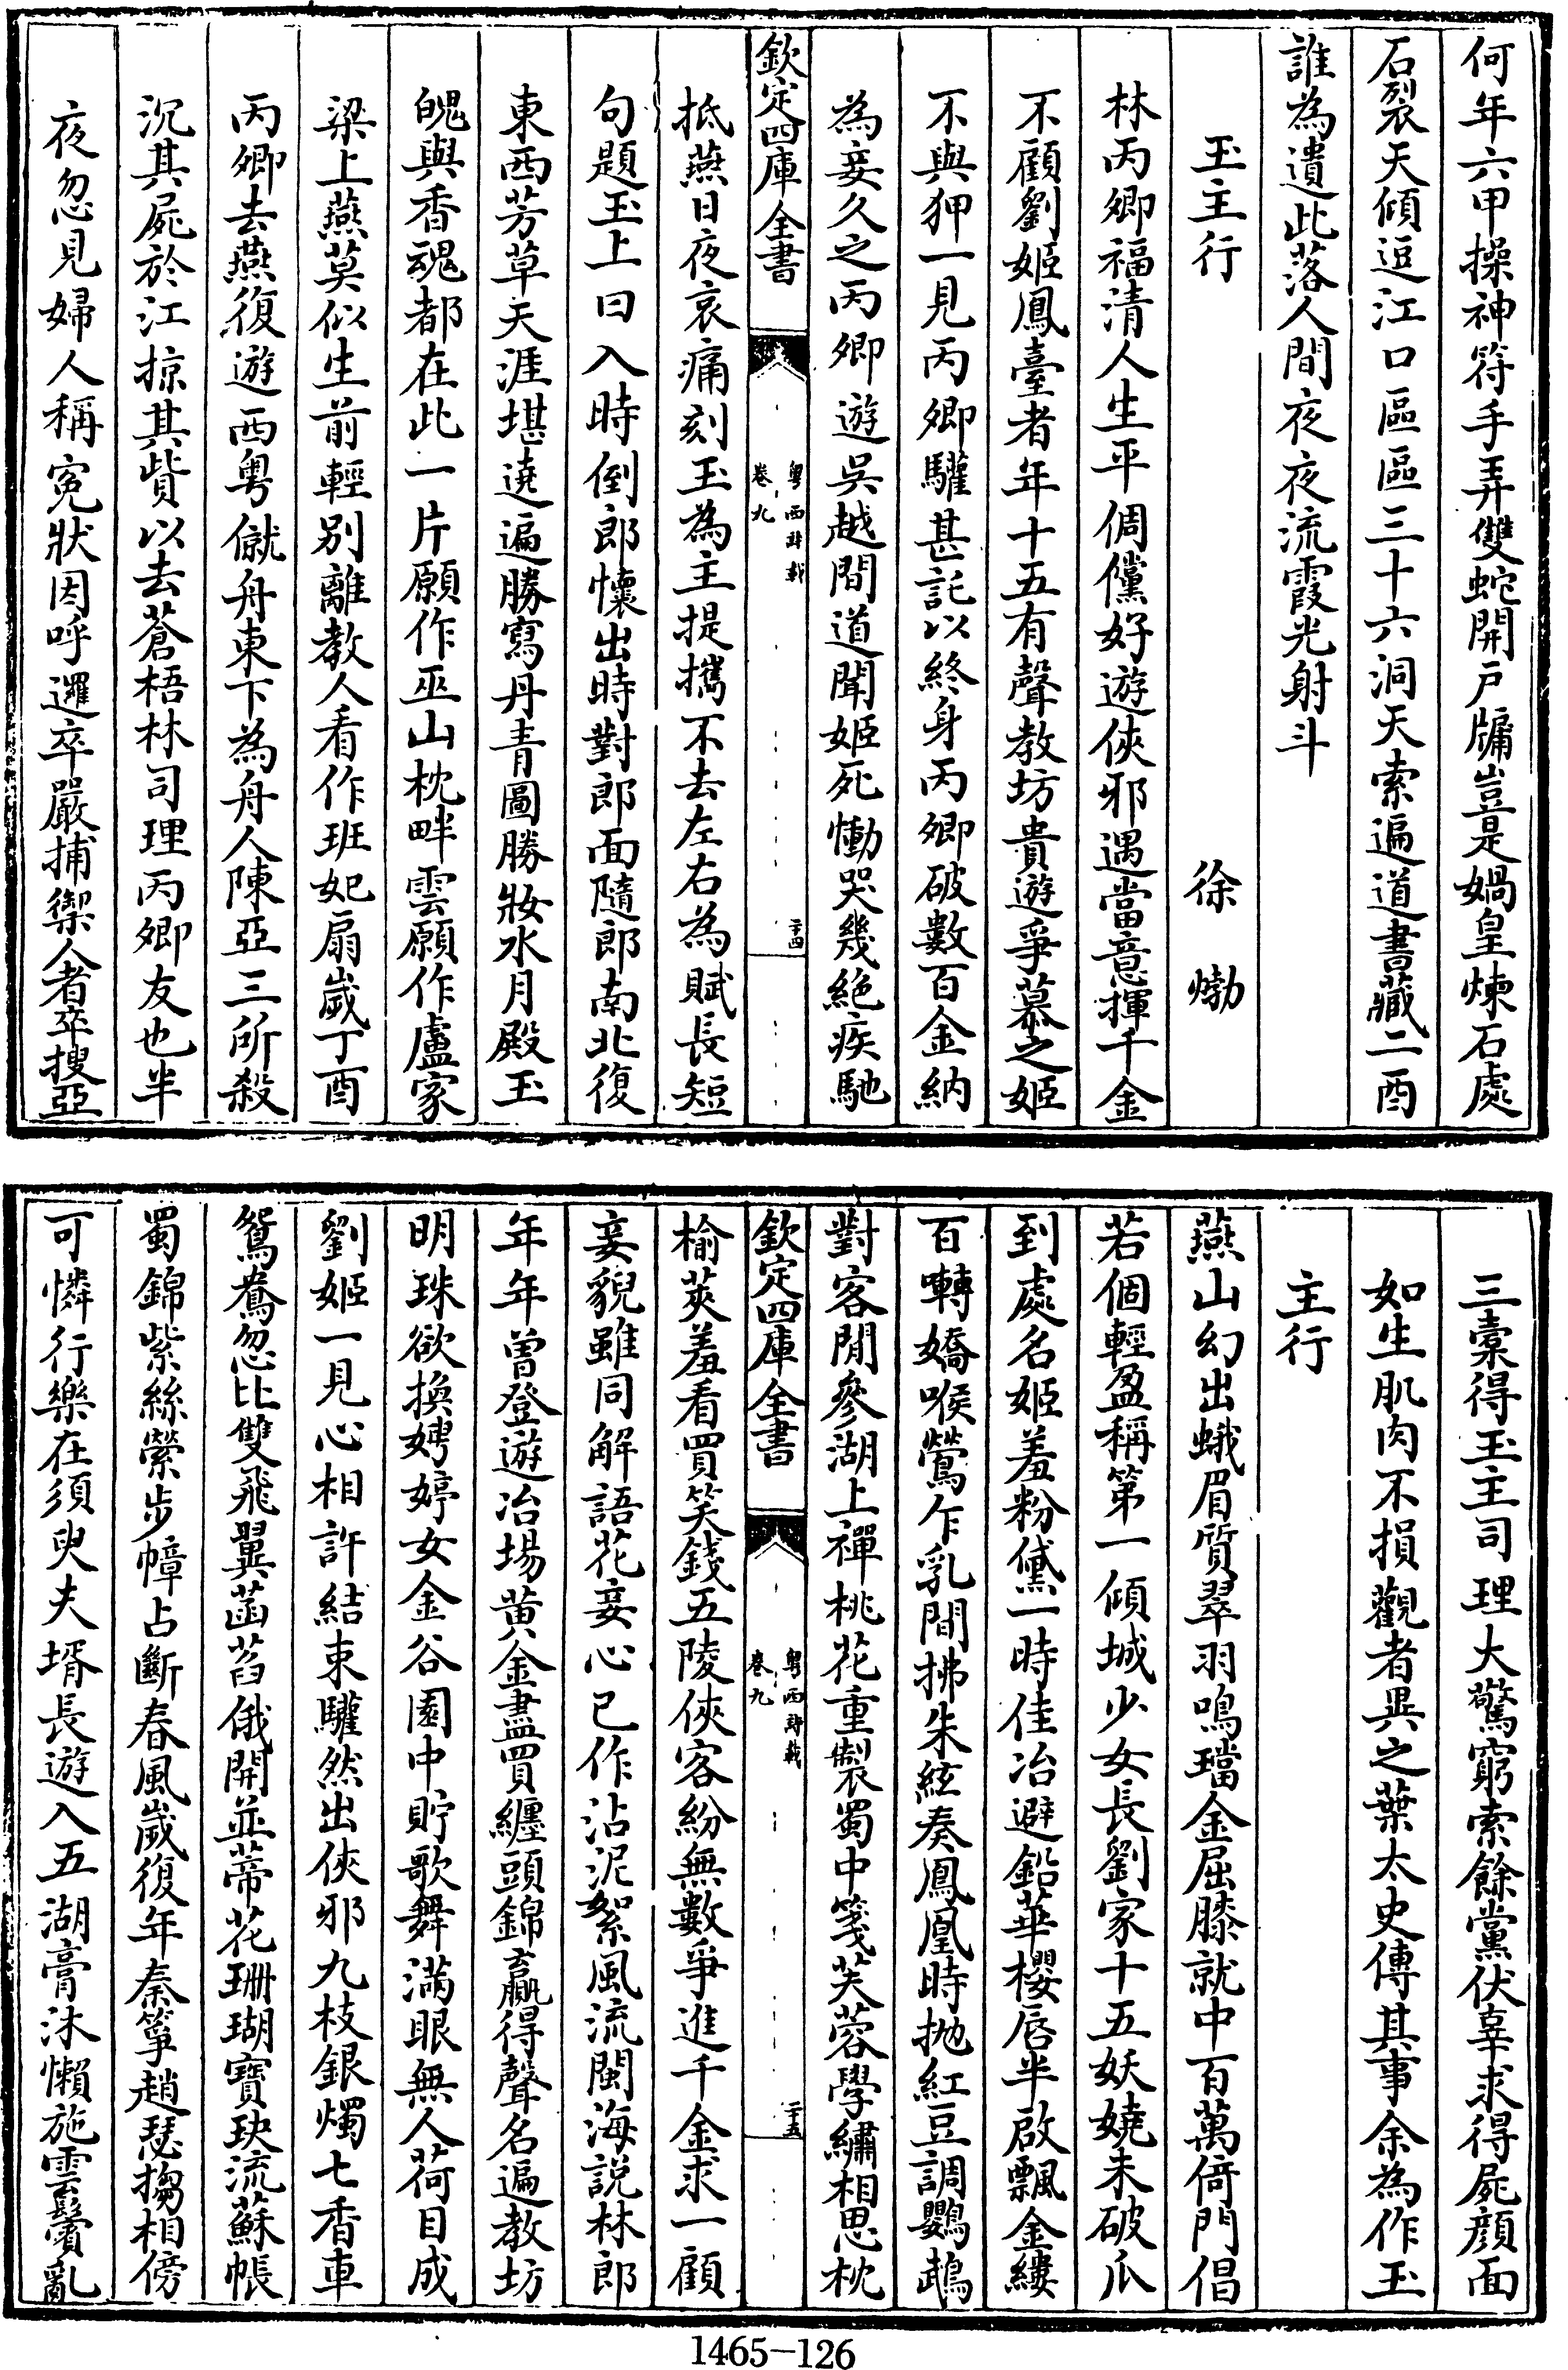 何年六甲操神符手弄雙蛇開戸牖豈是媧皇煉石處
石裂天傾逗江口區區三十六洞天索遍道書藏二酉
誰為遺此落人間夜夜流霞光射斗
玉主行　徐𤊹
林丙卿福清人生平倜儻好遊俠邪遇當意揮千金
不顧劉姬鳳臺者年十五有聲教坊貴遊爭慕之姬
不與狎一見丙卿驩甚託以終身丙卿破數百金納
為妾久之丙卿遊吳越間道聞姬死慟哭幾絶疾馳
欽定四庫全書　粵西詩載　卷九　二十四
抵燕日夜哀痛刻玉為主提攜不去左右為賦長短
句題玉上曰入時倒郎懷出時對郎面隨郎南北復
東西芳草天涯堪遶遍勝寫丹青圖勝妝水月殿玉
魄與香魂都在此一片願作巫山枕畔雲願作盧家
梁上燕莫似生前輕别離教人看作班妃扇歲丁酉
丙卿去燕復遊西粤僦舟東下為舟人陳亞三所殺
沉其屍於江掠其貲以去蒼梧林司理丙卿友也半
夜忽見婦人稱寃狀因呼邏卒嚴捕禦人者卒搜亞
三橐得玉主司理大驚窮索餘黨伏辜求得屍顔面
如生肌肉不損觀者異之葉太史傳其事余為作玉
主行
燕山幻出蛾眉質翠羽鳴璫金屈膝就中百萬倚門倡
若個輕盈稱第一傾城少女長劉家十五妖嬈未破瓜
到處名姬羞粉黛一時佳冶避鉛華櫻唇半啟飄金縷
百囀嬌喉鶯乍乳間拂朱絃奏鳳凰時抛紅豆調鸚鵡
對客閒參湖上禪桃花重製蜀中箋芙蓉學繡相思枕
欽定四庫全書　粵西詩載　卷九　二十五
榆莢羞看買笑錢五陵俠客紛無數爭進千金求一顧
妾貌雖同解語花妾心已作沾泥絮風流閩海説林郎
年年曽登遊冶場黄金盡買纏頭錦贏得聲名遍教坊
明珠欲換娉婷女金谷園中貯歌舞滿眼無人荷目成
劉姬一見心相許結束驩然出俠邪九枝銀燭七香車
鴛鴦忽比雙飛翼菡萏俄開並蒂花珊瑚寶玦流蘇帳
蜀錦紫絲縈步幛占斷春風歲復年秦箏趙瑟搊相傍
可憐行樂在須臾夫壻長遊入五湖膏沐懶施雲鬢亂
1465-126